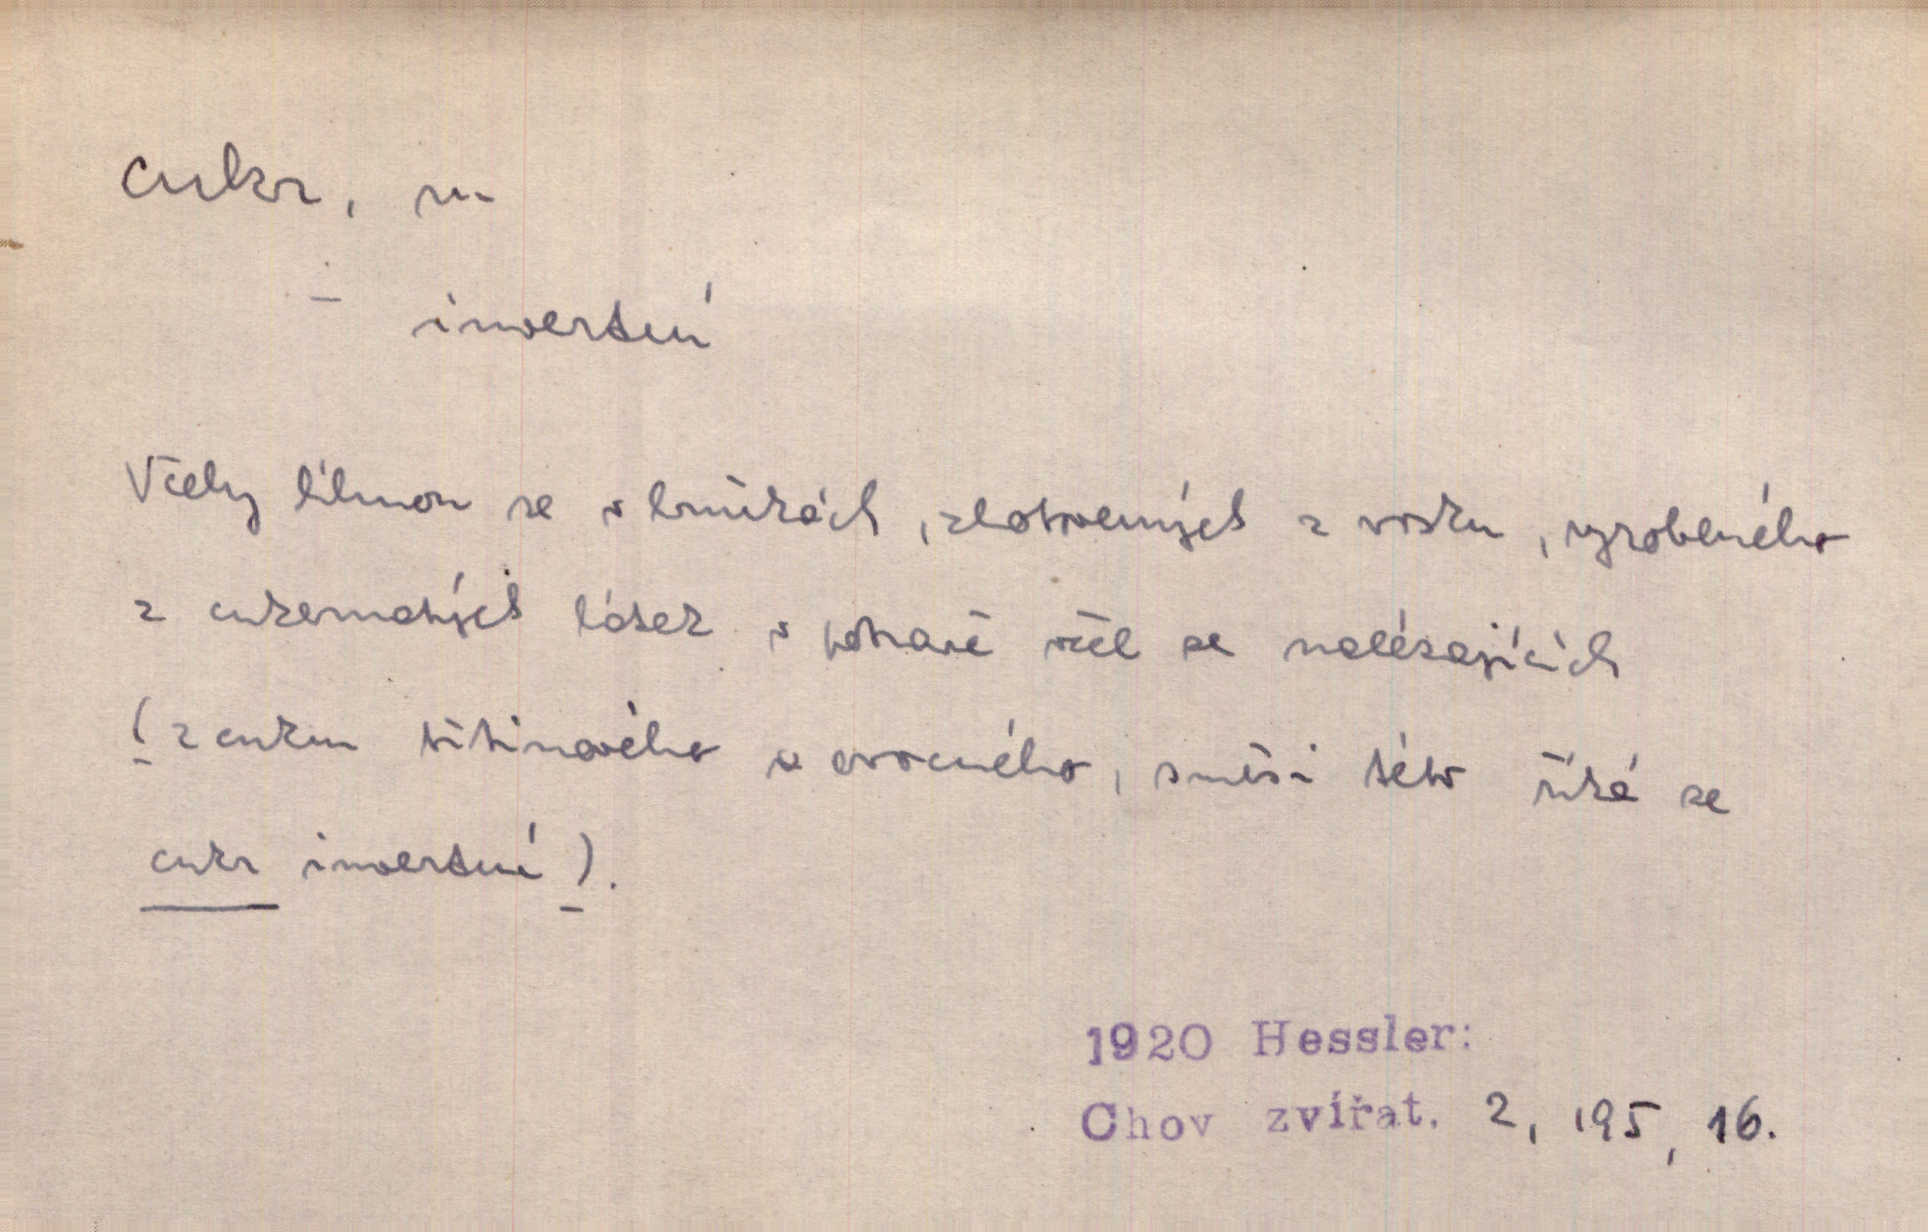 cukr, m
– invertní
Včely líhnou se v buňkách, zhotovených z vosku, vyrobeného
z cukernatých látek v potravě včel se nalézajících
(z cukru třtinového a ovocného, směsi této říká se
cukr invertní).
1920 Hessler:
Chov zvířat. 2, 195, 16.